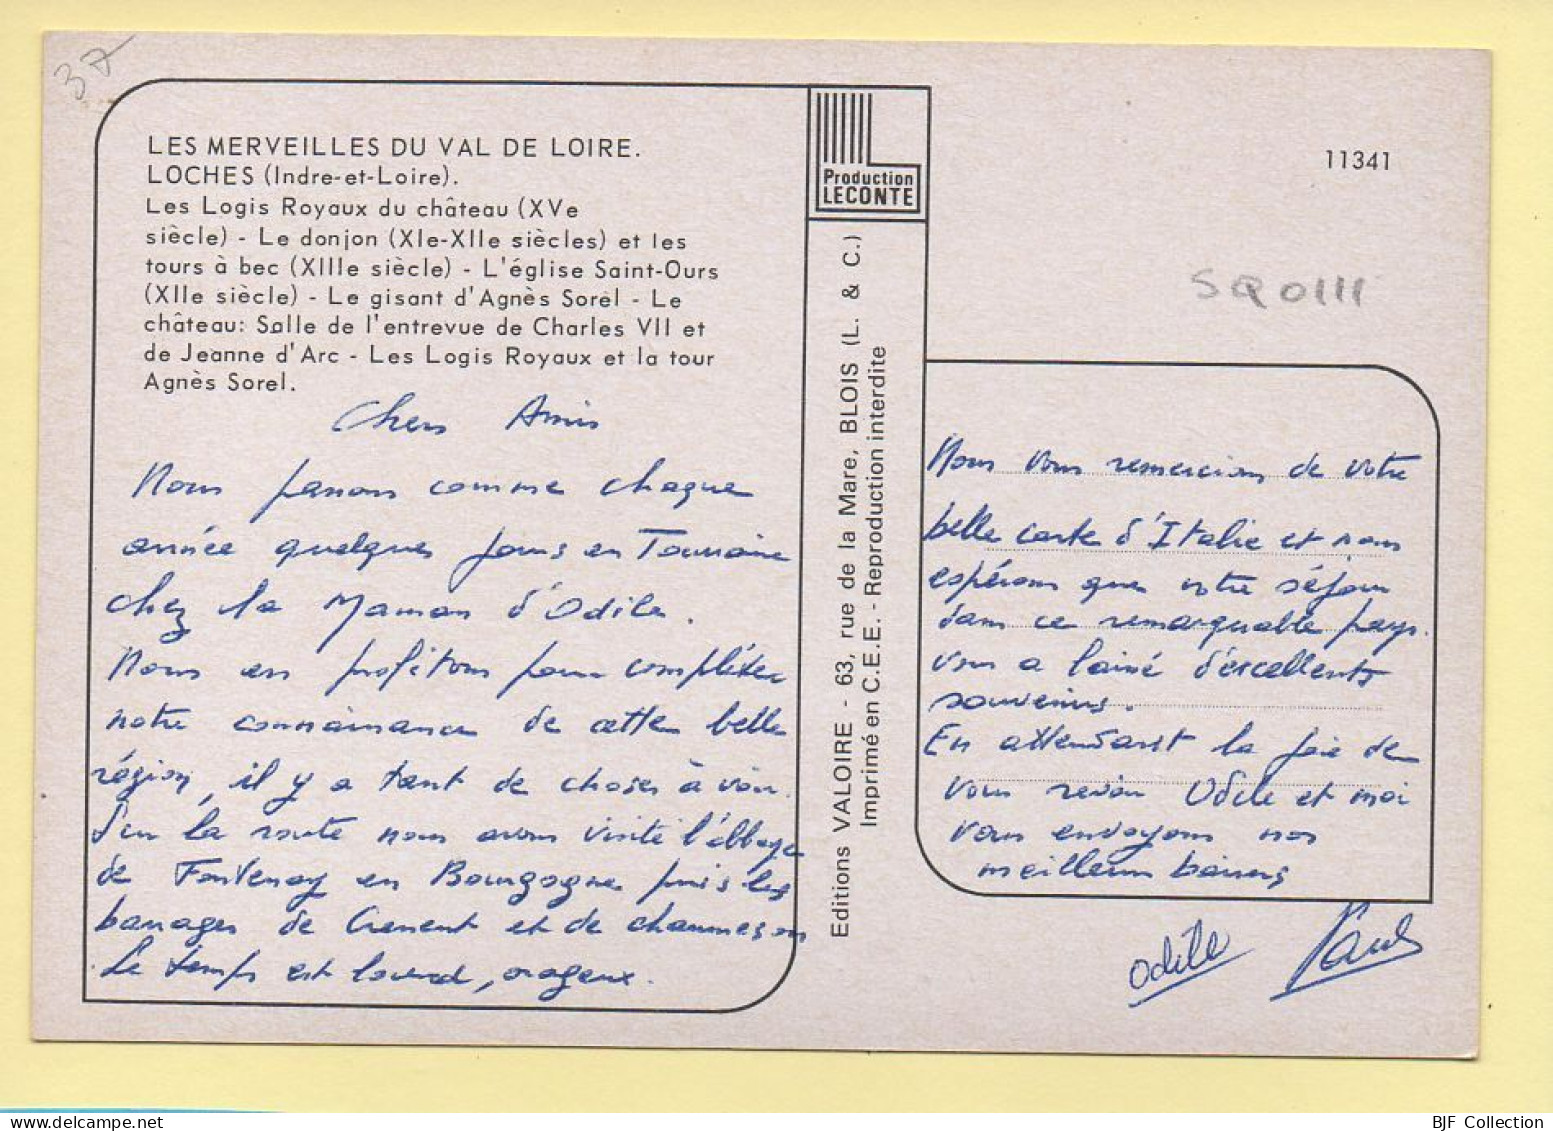 37
LES MERVEILLES DU VAL DE LOIRE.
LOCHES (Indre-et-Loire).
Les Logis Royaux du château (XVe
siècle) - Le donjon (XIe-XIIe siècles) et les
tours à bec (XIIIe siècle) - L'église Saint-Ours
(XIIe siècle) - Le gisant d'Agnès Sorel - Le
château: Salle de l'entrevue de Charles VII et
de Jeanne d'Arc - Les Logis Royaux et la tour
Agnès Sorel.
Chers Amis
Nous passons comme chaque
année quelques jours en Touraine
chez la Maman d'Odile.
Nous en profitons pour compléter
notre connaissance de cette belle
région, il y a tant de choses à voir.
Sur la route nous avons visité l'abbaye
de Fontenay en Bourgogne puis les
barrages de Crescent et de chaumeson
Le temps est lourd, orageux.
Production
LECONTE
Editions VALOIRE - 63, rue de la Mare, BLOIS (L. & C.)
Imprimé en C.E.E. - Reproduction interdite
11341
SQ0111
Nous vous remercions de votre
belle carte d'Italie et nous
espérons que votre séjour
dans ce remarquable pays
vous a laissé d'excellents
souvenirs.
En attendant la joie de
vous revoir Odile et moi
vous envoyons nos
meilleurs baisers
Odile Paul
BJF Collection